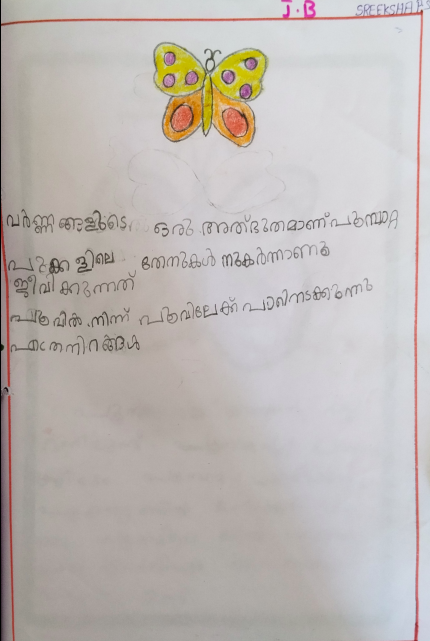 I.B SREEKSHA P.S
വർണ്ണങ്ങളുടെ ഒരു അത്ഭുതമാണ് പൂമ്പാറ്റ
പൂക്കളിലെ തേനുകൾ നുകർന്നാണ്
ജീവിക്കുന്നത്
പൂവിൽ നിന്ന് പൂവിലേക്ക് പാറിനടക്കുന്നു